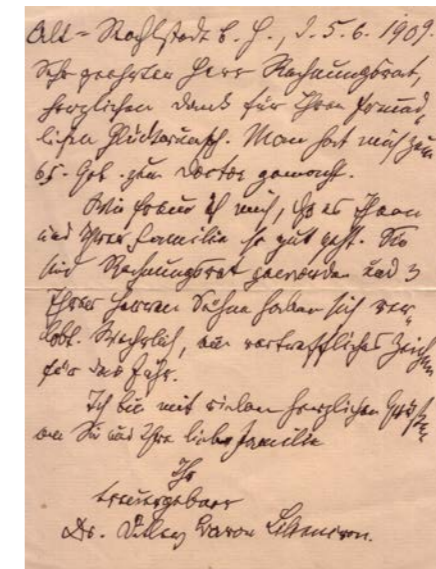 Alt-Rahlstedt b. H., d. 5.6.1909.
Sehr geehrter Herr Rechnungsrat,
herzlichen Dank für Ihren freund-
lichen Glückwunsch. Man hat mich zum
65. Geb. zum Doctor gemacht.
Wie freue ich mich, daß es Ihnen
und Ihrer Familie so gut geht. Sie
sind Rechnungsrat geworden und 3
Ihrer Herren Söhne haben sich ver-
lobt. Wahrlich, ein vortreffliches Zeichen
für das Jahr.
Ich bin mit vielen herzlichen Grüßen
an Sie und Ihre liebe Familie
Ihr
treuergebener
Dr. Baron Liliencron.